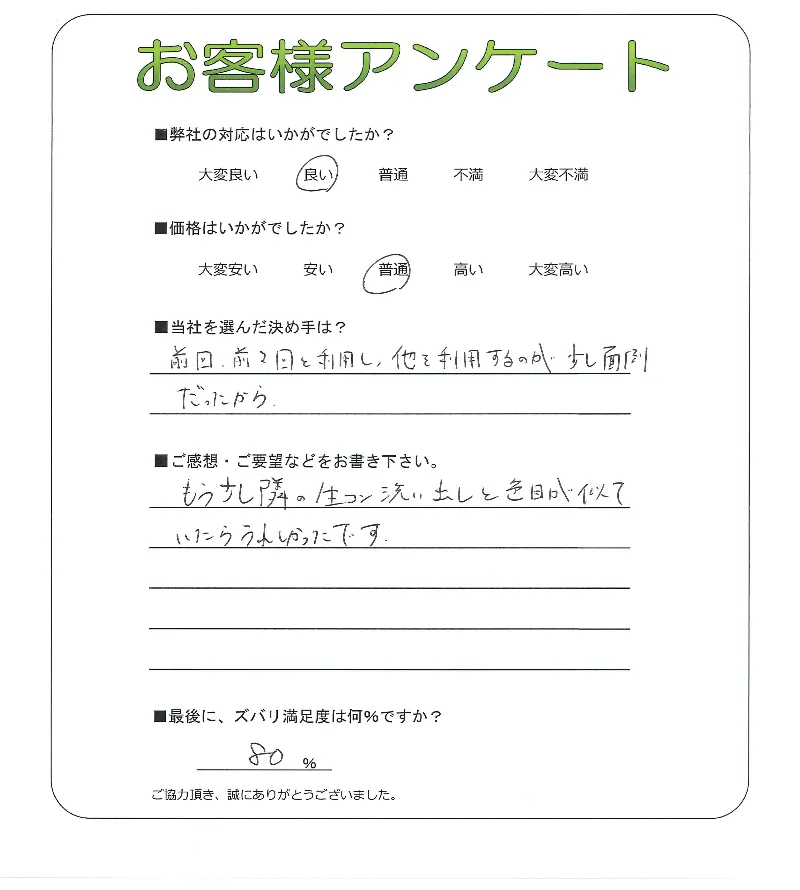 お客様アンケート
■弊社の対応はいかがでしたか？
大変良い 良い 普通 不満 大変不満
■価格はいかがでしたか？
大変安い 安い 普通 高い 大変高い
■当社を選んだ決め手は？
前回、前々回と利用し、他を利用するのが少し面倒
だったから.
■ご感想・ご要望などをお書き下さい。
もう少し隣の生コン洗い出しと色目が似て
いたらうれしかったです.
■最後に、ズバリ満足度は何％ですか？
80 ％
ご協力頂き、誠にありがとうございました。